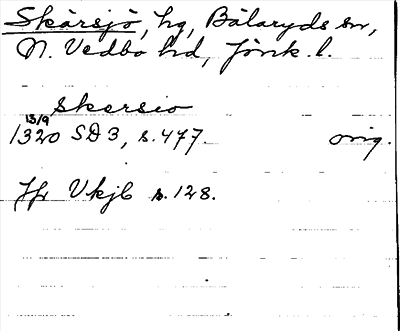 Skärsjö, hg, Bälaryds sn,
N. Vedbo hd, Jönk. l.
Skersio
13/9
1320 SD 3, s. 477. orig.
Jfr Vkjb s. 128.